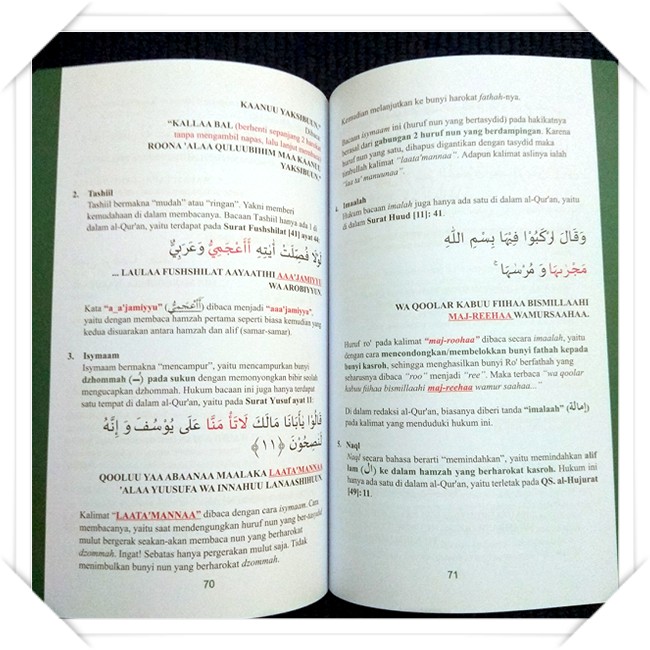 KAANUU YAKSIBUUN."
Dibaca:
"KALLAA BAL (berhenti sepanjang 2 harakat
tanpa mengambil napas, lalu lanjut membaca)
ROONA 'ALAA QULUUBIHIIM MAA KAANUU
YAKSIBUUN."
2. Tashiil
Tashiil bermakna "mudah" atau "ringan". Yakni memberi
kemudahan di dalam membacanya. Bacaan Tashiil hanya ada 1 di
dalam al-Qur'an, yaitu terdapat pada Surat Fushshilat [41] ayat 44:
لَوْلَا فُصِّلَتْ أٰيٰتُهٗ أَأَعْجَمِيٌّ وَعَرَبِيٌّ
... LAULAA FUSHSHILAT AAYAATIHI AAA'JAMIYYU
WA AROBIYYUN.
Kata "a_a'jamiyyu" (أَأَعْجَمِيٌّ) dibaca menjadi "aaa'jamiyyu",
yaitu dengan membaca hamzah pertama seperti biasa kemudian yang
kedua disuarakan antara hamzah dan alif (samar-samar).
3. Isymaam
Isymaam bermakna "mencampur", yaitu mencampurkan bunyi
dzhommah (ـُ) pada sukun dengan memonyongkan bibir seolah
mengucapkan dzhommah. Hukum bacaan ini juga hanya terdapat
satu tempat di dalam al-Qur'an, yaitu pada Surat Yusuf ayat 11:
قَالُوْا يٰأَبَانَا مَالَكَ لَاتَأْ مَنَّا عَلٰى يُوْسُفَ وَ إِنَّهُ
لَنٰصِحُوْنَ ﴿١١﴾
QOOLUU YAA ABAANAA MAALAKA LAATA'MANNAA
'ALAA YUUSUFA WA INNAHUU LANAASHIHUUN
Kalimat "LAATA'MANNAA" dibaca dengan cara isymaam. Cara
membacanya, yaitu saat mendengungkan huruf nun yang ber-tasydid
mulut bergerak seakan-akan membaca nun yang berharokat
dzommah. Ingat! Sebatas hanya pergerakan mulut saja. Tidak
menimbulkan bunyi nun yang berharokat dzommah.
70
Kemudian melanjutkan ke bunyi harokat fathah-nya.
Bacaan isymaam ini (huruf nun yang bertasydid) pada hakikatnya
berasal dari gabungan 2 huruf nun yang berdampingan. Karena
huruf nun yang satu, dihapus digantikan dengan tasydid maka
timbullah kalimat "laata'mannaa". Adapun kalimat aslinya ialah
"laa ta' manuunaa."
4. Imaalah
Hukum bacaan imalah juga hanya ada satu di dalam al-Qur'an, yaitu
di dalam Surat Huud [11]: 41.
وَقَالَ ارْكَبُوْا فِيْهَا بِسْمِ اللّٰهِ
مَجْرٰىهَا وَ مُرْسٰىهَا ۚ
WA QOOLAR KABUU FIIHAA BISMILLAAHI
MAJ-REEHAA WAMURSAAHAA.
Huruf ro' pada kalimat "maj-roohaa" dibaca secara imaalah, yaitu
dengan cara mencondongkan/membelokkan bunyi fathah kepada
bunyi kasroh, sehingga menghasilkan bunyi Ro' berfathah yang
seharusnya dibaca "roo" menjadi "ree". Maka terbaca "wa qoolar
kabuu fiihaa bismillaahi maj-reehaa wamur saahaa..."
Di dalam redaksi al-Qur'an, biasanya diberi tanda "imalaah" (إمالة)
pada kalimat yang menduduki hukum ini.
5. Naql
Naql secara bahasa berarti "memindahkan", yaitu memindahkan alif
lam (ال) ke dalam hamzah yang berharokat kasroh. Hukum ini
hanya ada satu di dalam al-Qur'an, yaitu terletak pada QS. al-Hujurat
[49]: 11.
71